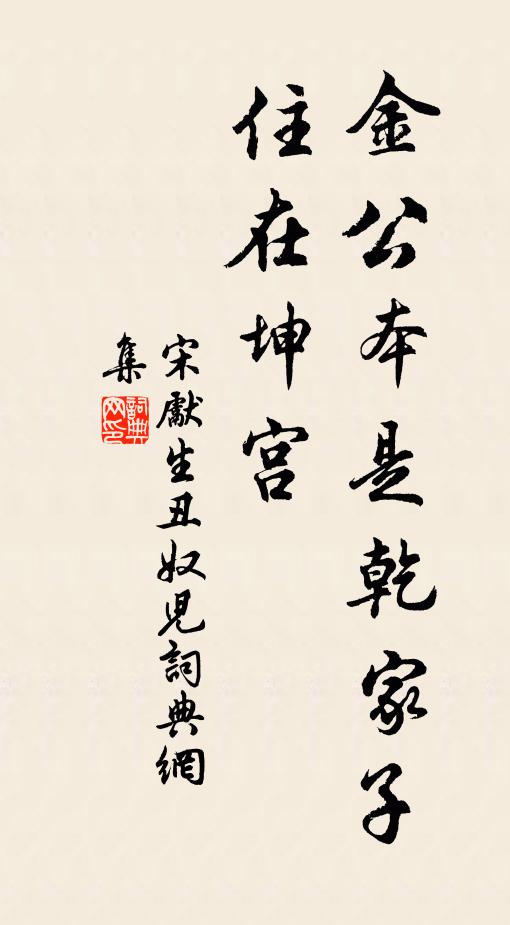 金公本是乾家子
住在坤宫
宋獻生丑奴児詞典網
集
詞典
网印